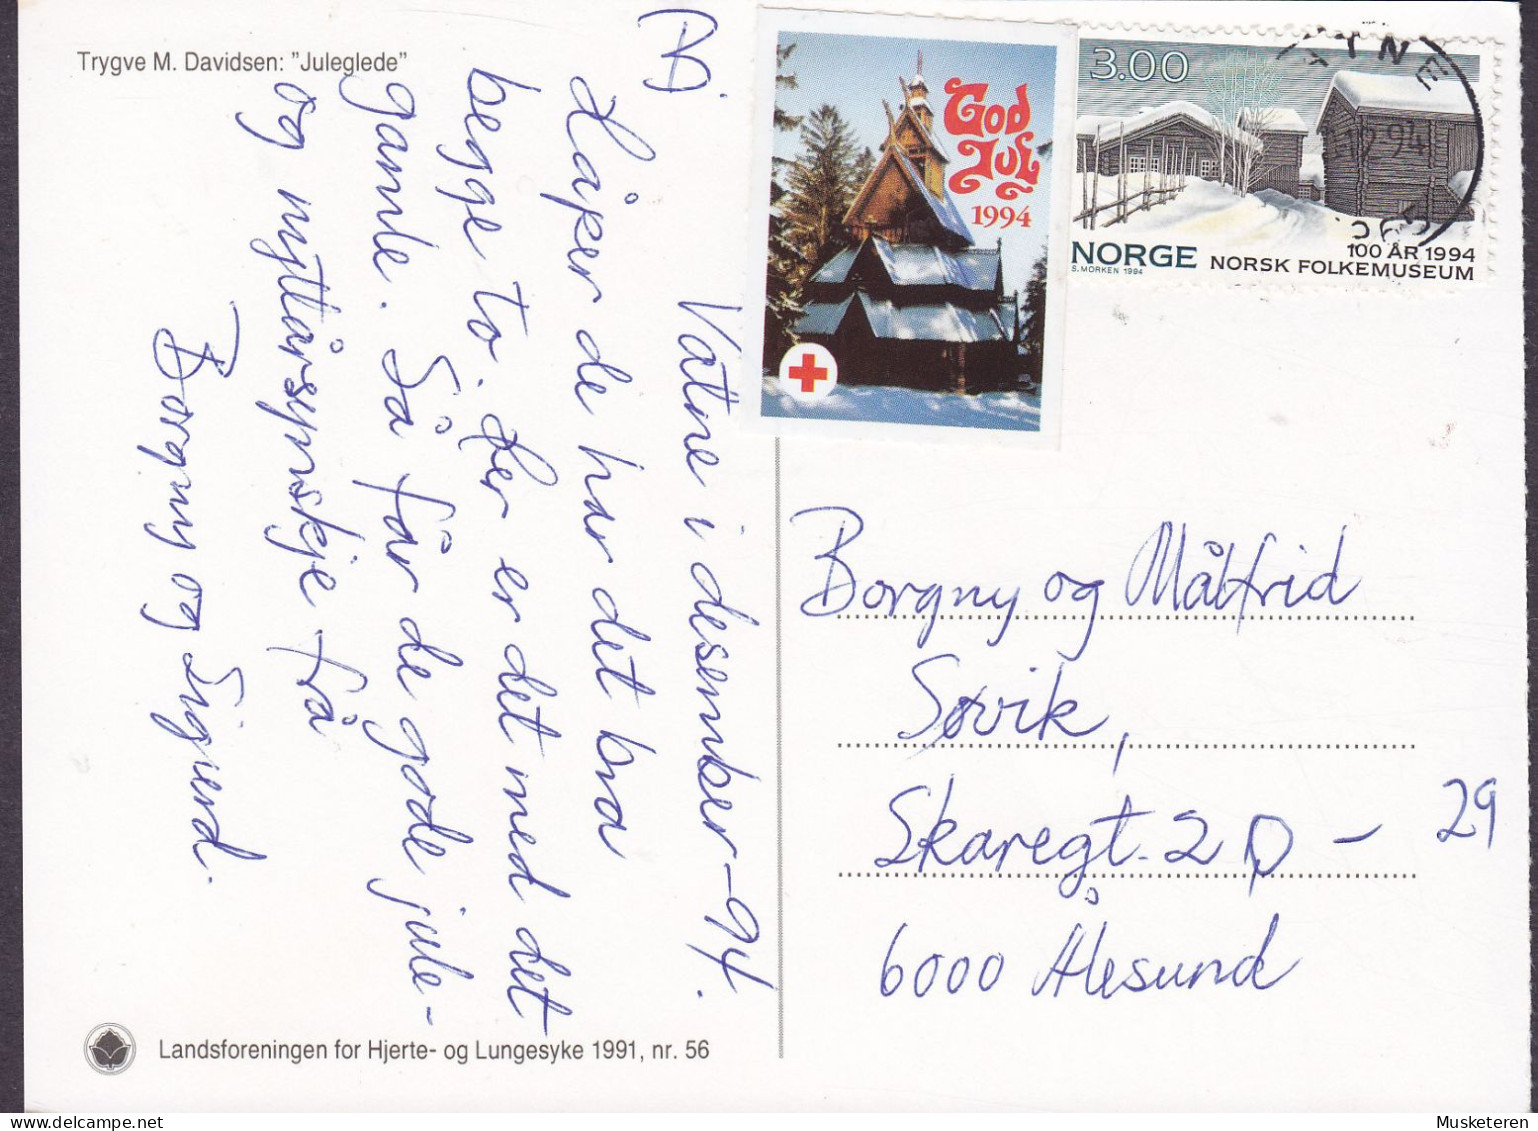 Trygve M. Davidsen: "Juleglede"
Vatne i desember-94.
Håper de har det bra
begge to. Her er det med det
gamle. Så får de gode jule-
og nyttårsynskje frå
Borgny og Sigurd.
God
Jul
1994
3.00
NORGE
S. MORKEN 1994
100 ÅR 1994
NORSK FOLKEMUSEUM
12.94
Borgny og Målfrid
Søvik,
Skaregt. 2 D - 29
6000 Ålesund
Landsforeningen for Hjerte- og Lungesyke 1991, nr. 56
Musketeren